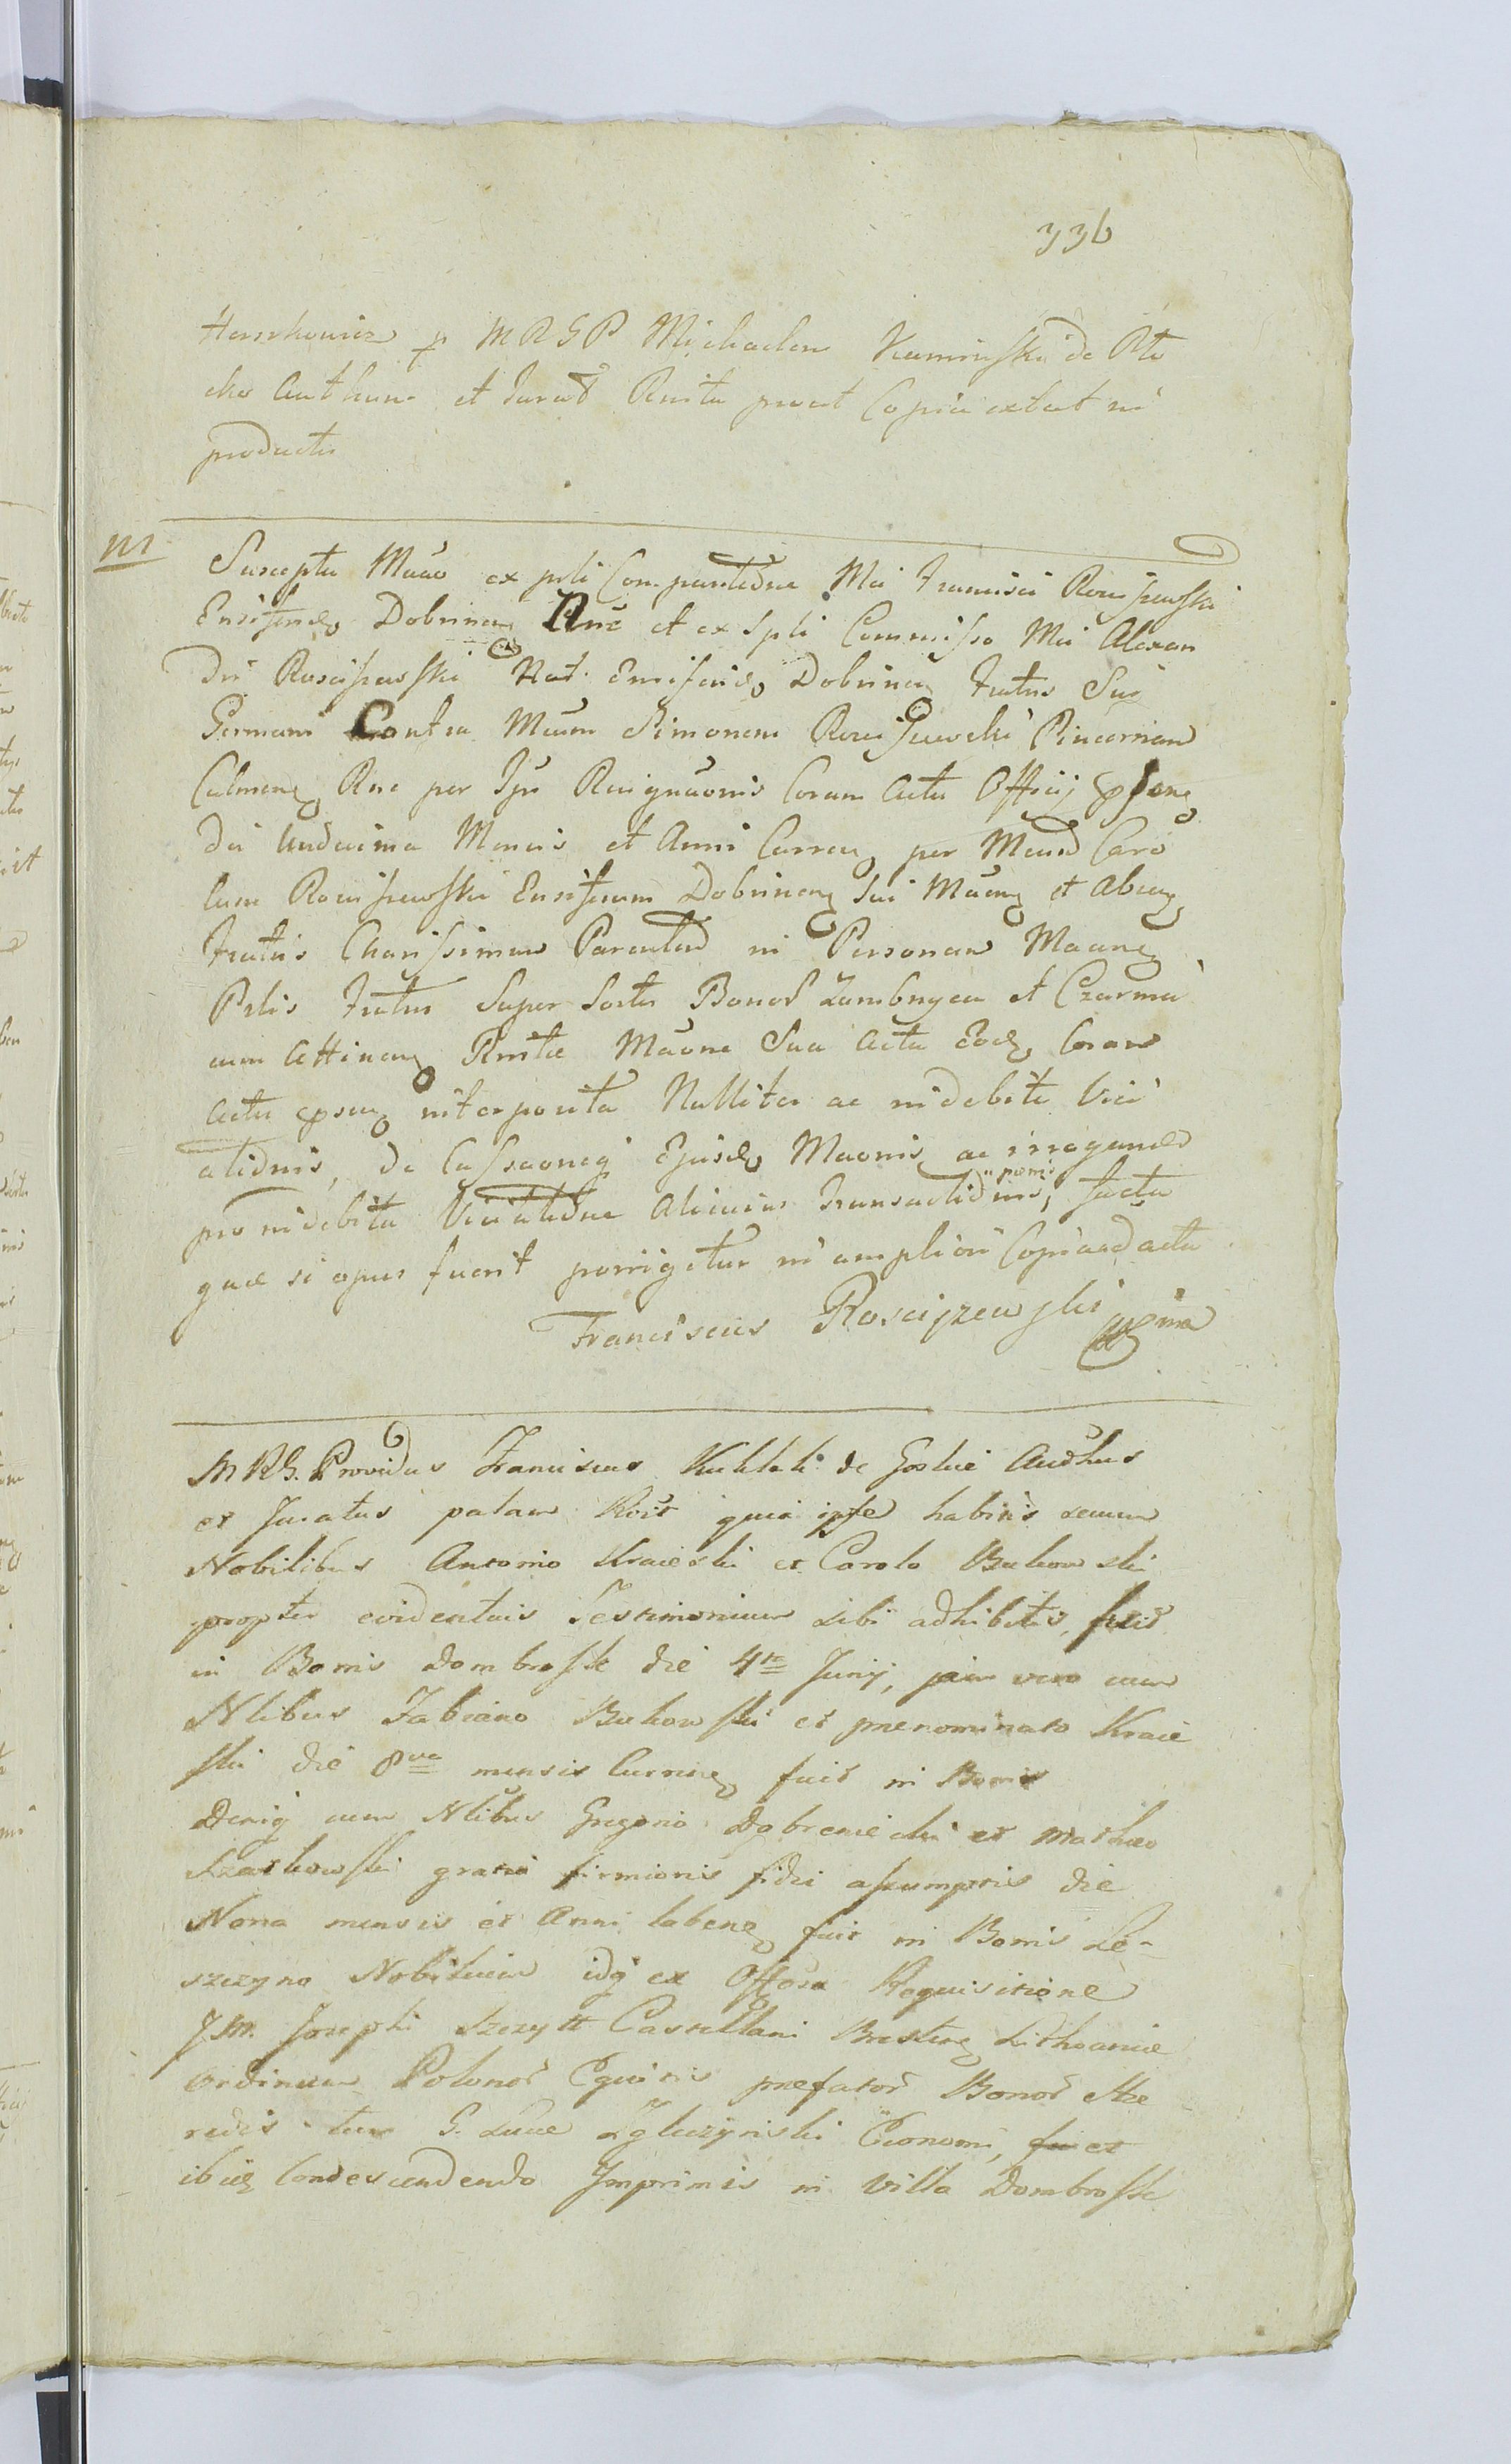 336
Herszkowicz p MRGP Michaelem Kaminski de Pło
cko Authum et Jurat Rnita prout Copia extat in
producta
M
Suscepta Mano ex psli Comparitione Mci Francisci Roscissewski
Ensiferid Dobrinen Rnc et ex spli Commisso Mci Alexan
dri Roscissewski Nat. Ensiferid Dobrinen Fratris Sui
Germani Contra Mcum Simonem Roscissewski Pincernam
Culmen Rnc per Ipm Resignaonis Coram Actis Officij psenę
die Undecima Mensis et Anni Curren per Mcum Caro
lum Roscissewski Ensiferum Dobrinen sui Manen et Absen
Fratris Charissimum Parentem in Personam Manen
Prlis Fratris Super Sortes Bonor Zambrzyca et Czarnia
cum Attinen Rnitae Maone Sua Acta Eod. Coram
Actis psen interposita Nulliter ac indebite Vici
atidnis, de Cassaoneq Ejusd. Maonis ac irrogand
pro indebita Viciatidne Alicuius Transactidnis, "poenis facta
quae si opus fuerit porrigetur in ampliori Copia ad acta
Franciscus Rosciszewski mp
MRG. Providus Franciscus Kuklak de Goslie Authus
et Juratus palam Rcit quia ipse habitis secum
Nobilibus Antonio Kraieski et Carolo Bukowski
propter evidentius Testimonium sibi adhibitis, fuit
in Bonis Dombrosk die 4ta Junij, jam vero cum
Nlibus Fabiano Bukowski et praenominato Kraie
ski die 8va mensis Curren fuit in Bonis
Deniq cum Nlibus Gregorio Dobreniecki et Matheo
Szatkowski gratia firmioris fidei assumptis die
Nona mensis et Anni laben fuit in Bonis Le-
szczyno Nobilium idq ex Offosa Requisitione
JM. Josephi Szczytt Castellani Bresten Lithvaniae
Ordinum Polonor Equitis praefator Bonor Hae
redis tum G. Lucae Zgliczynski Economi, et
ibiq Condescendendo Imprimis in Villa Dombrosk